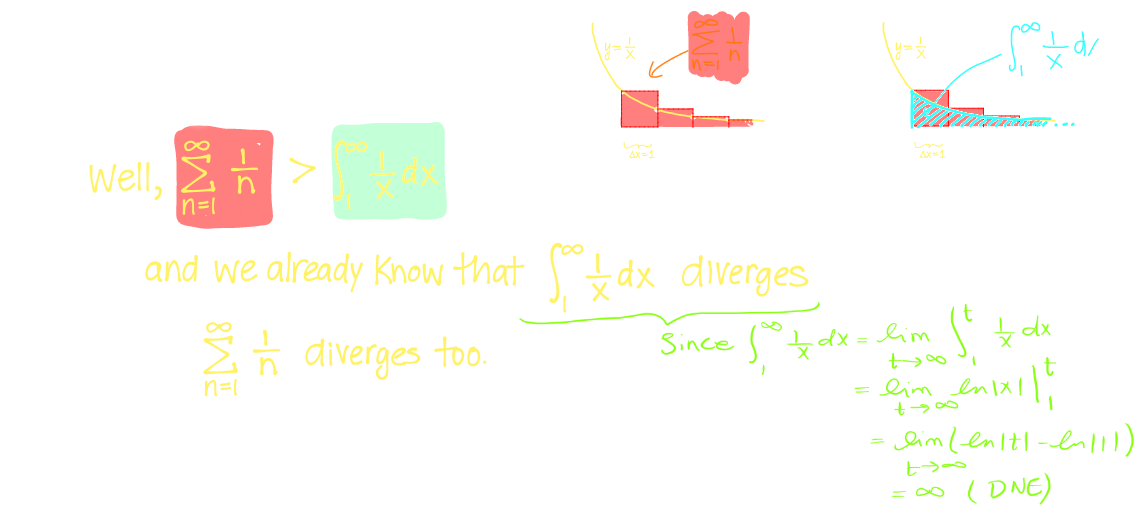 y=1/x
∑_{n=1}^{∞} 1/n
Δx=1
y=1/x
∫_1^∞ 1/x d
Δx=1
Well, ∑_{n=1}^{∞} 1/n > ∫_1^∞ 1/x dx
and we already know that ∫_1^∞ 1/x dx diverges
∑_{n=1}^{∞} 1/n diverges too.
Since ∫_1^∞ 1/x dx = lim_{t→∞} ∫_1^t 1/x dx
= lim_{t→∞} ln|x| |_1^t
= lim_{t→∞} (ln|t| - ln|1|)
= ∞ (DNE)